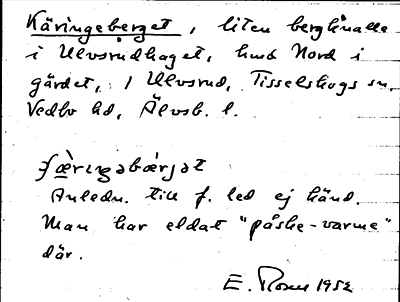 Käringeberget, liten bergknalle
i Ulvsrudhaget, Nord i
gärdet, i Ulvsrud, Tisselskogs sn.
Vedbo hd, Älvsb. l.
Anledn. till f. led ej känd.
Man har eldat "påske-varme"
där.
E. 1952